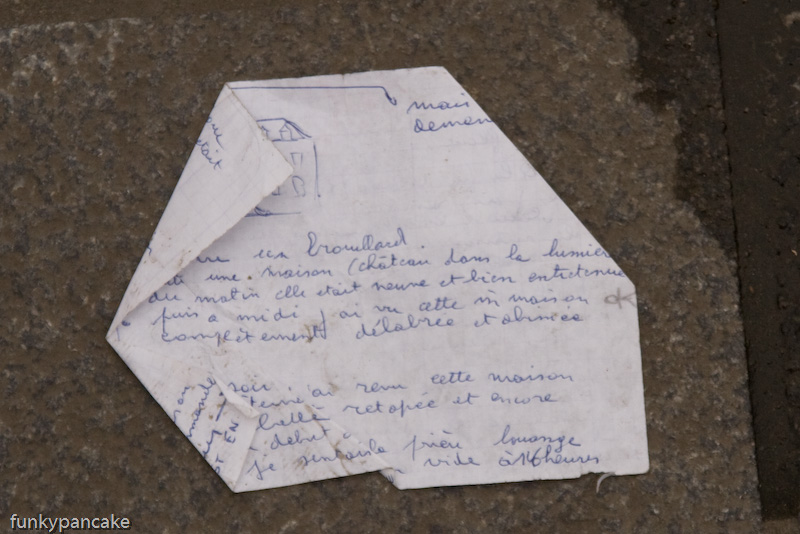 mais
deman
était
un brouillard.
une maison (château dans la lumière
du matin elle était neuve et bien entretenue
puis a midi j'ai vu cette m maison
complètement délabrée et abimée
soir
j'ai revu cette maison
belle retapée et encore
début
je sentais le prière louange
vide à 16 heures
EN
funkypancake